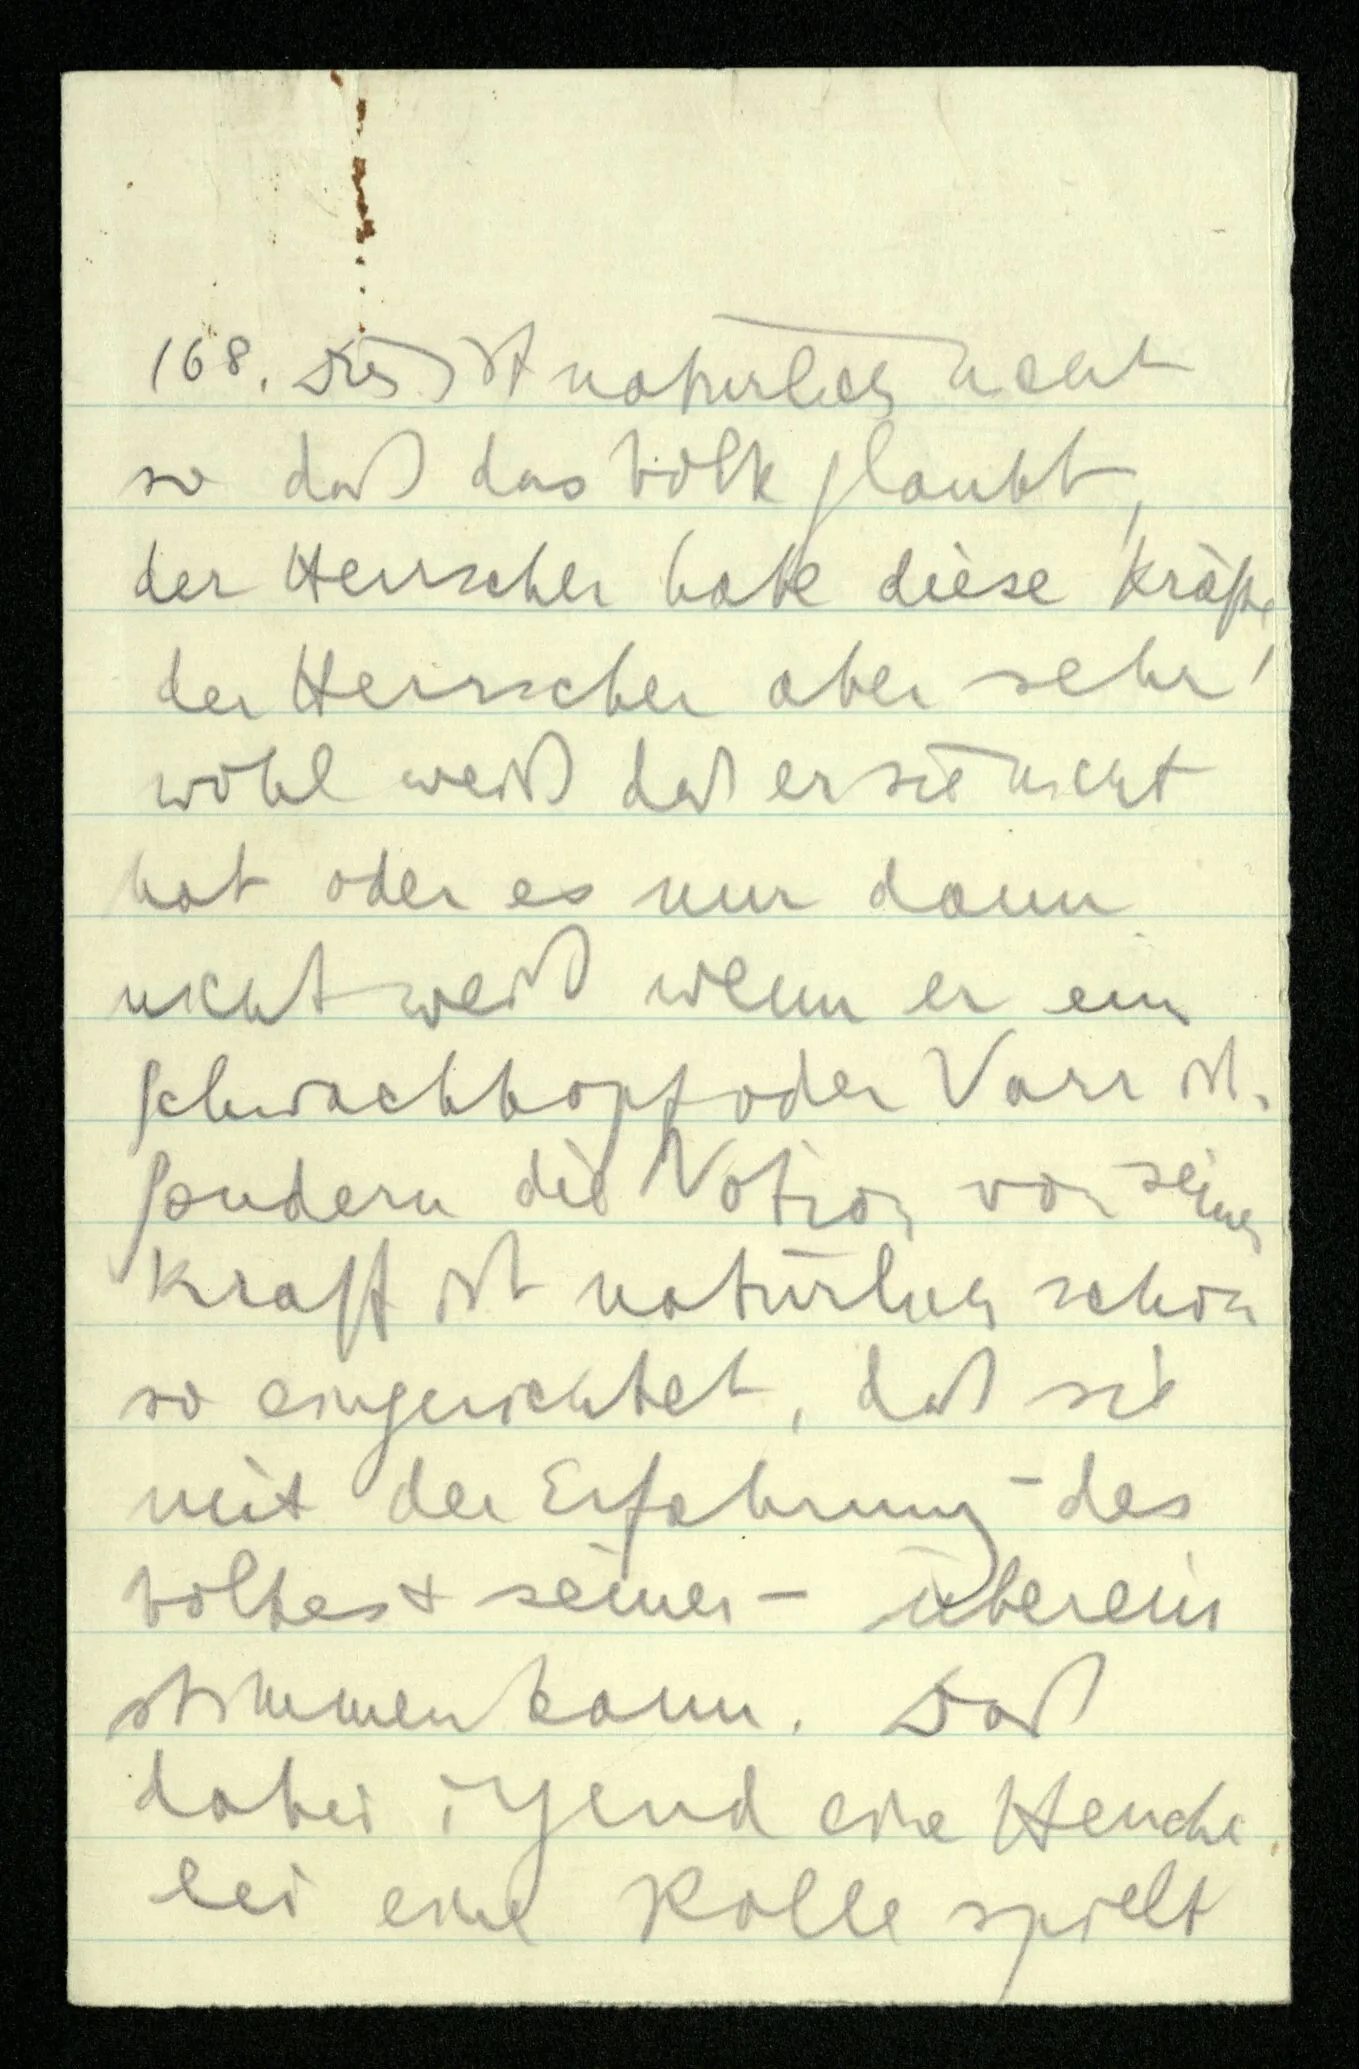 168. Dies ist natürlich nicht
so daß das Volk glaubt,
der Herrscher habe diese Kräfte,
der Herrscher aber sehr
wohl weiß daß er sie nicht
hat oder es nur dann
nicht weiß wenn er ein
Schwachkopf oder Narr ist.
Sondern die Notion von seiner
Kraft ist natürlich schon
so eingerichtet, daß sie
mit der Erfahrung – des
Volkes & seiner – überein
stimmen kann. Daß
dabei irgend eine Heuche
lei eine Rolle spielt